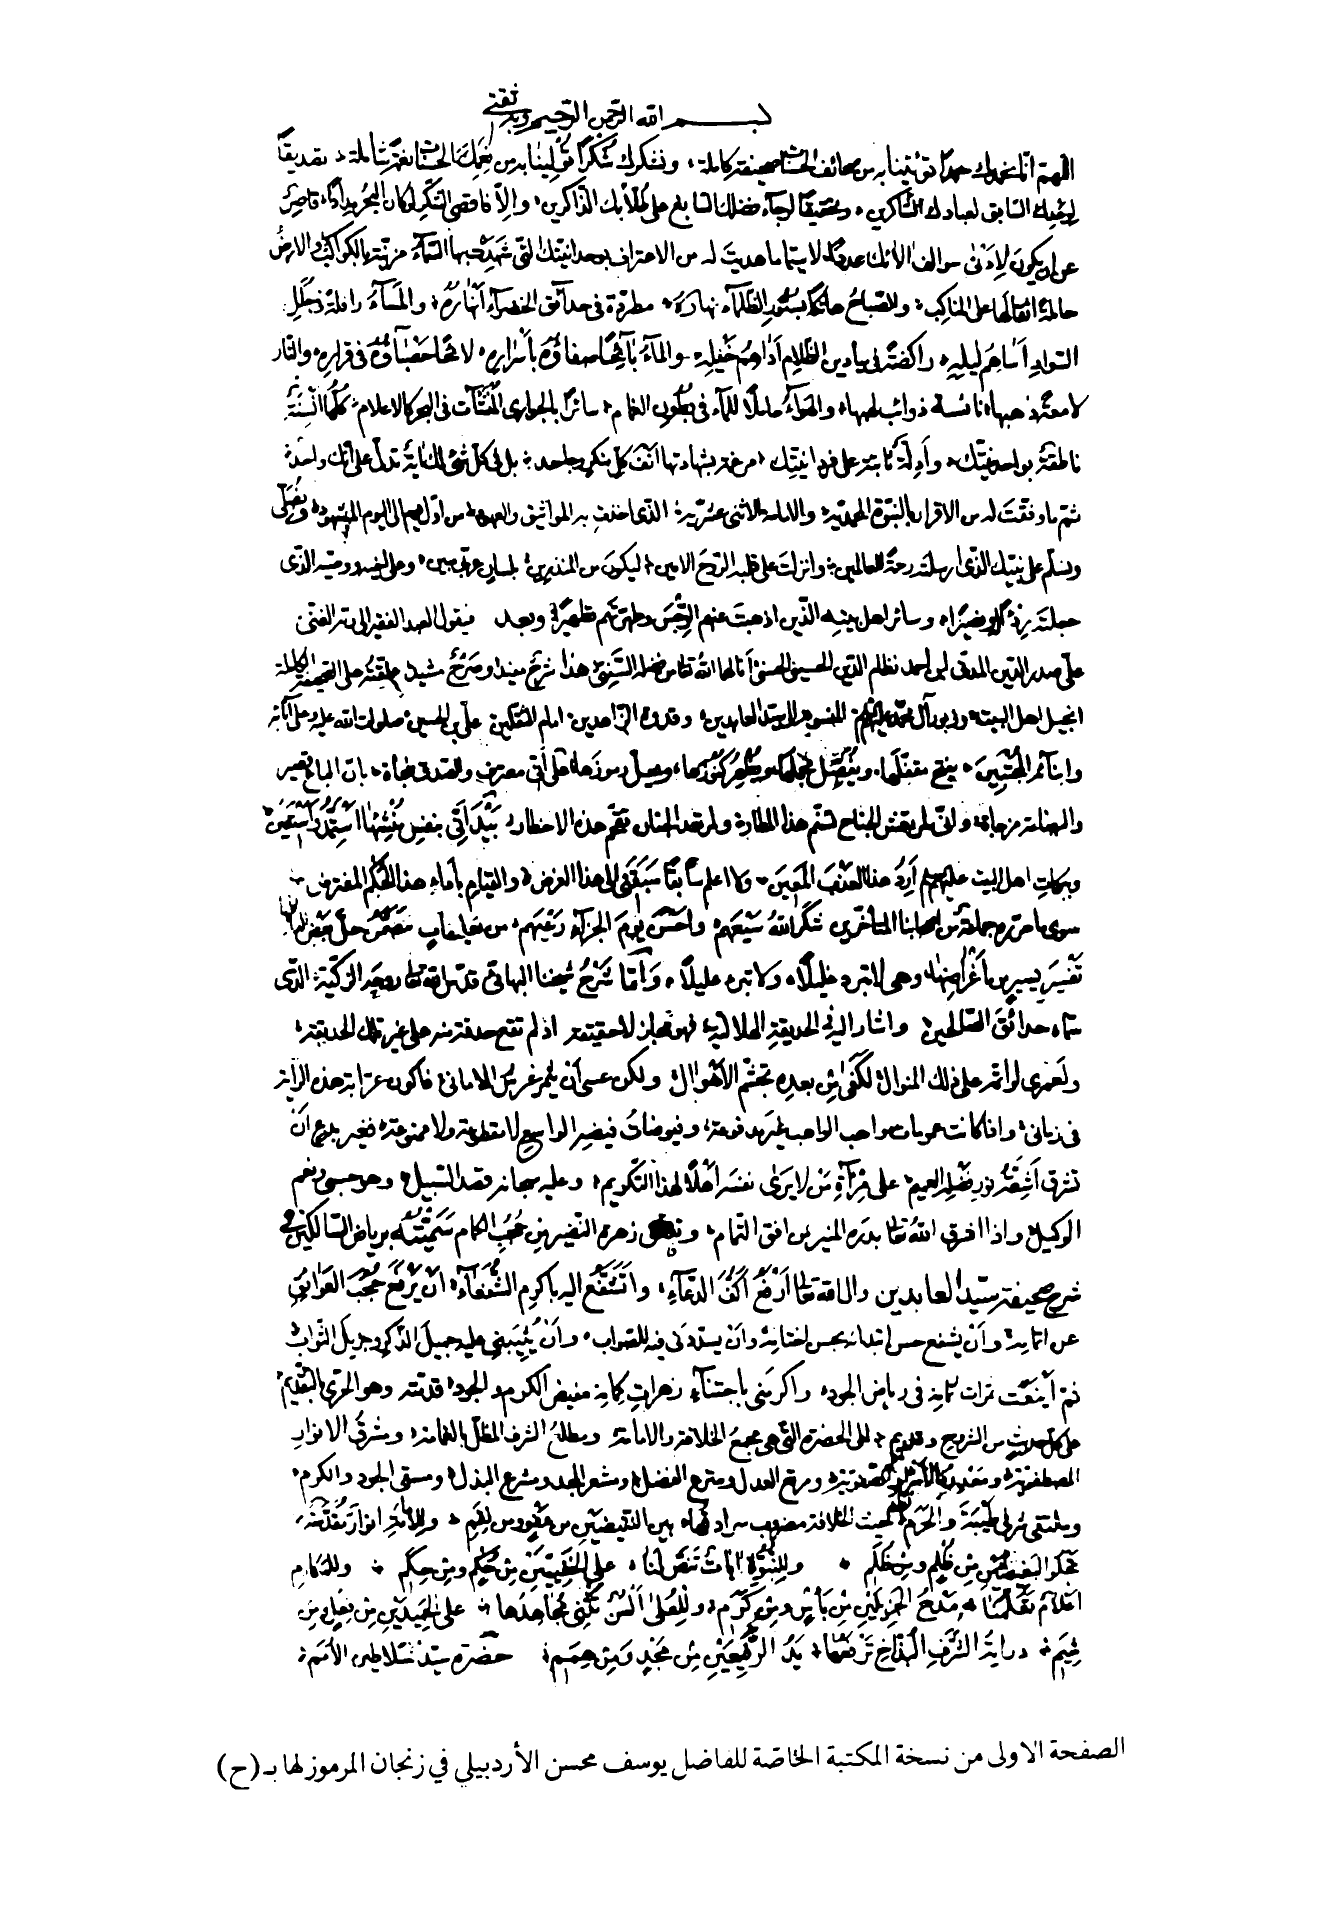 بسم الله الرحمن الرحيم وبه ثقتي
اللهم انا نحمدك حمدا تؤتينا به من صحائف الحسنات صحيفة كاملة ونشكرك شكرا تولينا به من نعمك الحسنات نعمة شاملة تصديقا
لوعدك السابق لعبادك الشاكرين وتحقيقا لرجاء فضلك السابغ على الذاكرين والا
عن ان يكون لادنى سوالف الائك لا سيما ما هديت له من الاعتراف بوحدانيتك التي شهدت بها السماء مزينة بالكواكب والارض
حاملة اثقالها على المناكب والصباح نهاره مطردة في حدائق الخضراء انهاره والمساء رافلة في حلل
السواد ليله راكضة في ميادين الظلام خيله والماء في قراره والنار
لامعة ذوائب لهبها والهواء حاملا للماء في بطون الغمام سائرا بالجواري المنشآت في البحر كالاعلام كلها السنة
ناطقة بواحديتك وادلة ثابتة على فردانيتك مرغمة بشهادتها انف كل منكر وجاحد بل في كل شيء لك اية تدل على انك واحد
ثم ما وفقت له من الاقرار بالنبوة المحمدية والامامة الاثنى عشرية الذي اخذت به المواثيق والعهود من اول يوم الى اليوم المشهود ونصلي
ونسلم على نبيك الذي ارسلته رحمة للعالمين وانزلت على قلبه الروح الامين ليكون من المنذرين بلسان عربي مبين وعلى وصيه الذي
جعلته وزيرا وسائر اهل بيته الذين اذهبت عنهم الرجس وطهرتهم تطهيرا وبعد فيقول العبد الفقير الى ربه الغني
علي صدر الدين المدني ابن احمد نظام الدين الحسيني الحسني انالهما الله تعالى من فضله السني هذا شرح مفيد وصرح مشيد علقته على الصحيفة الكاملة
انجيل اهل البيت وزبور آل محمد عليهم السلام المنسوب الى سيد العابدين وقدوة الزاهدين امام الثقلين علي بن الحسين صلوات الله عليه وعلى آبائه
وابنائه المجتبين يفتح مقفلها ويفصل مجملها ويظهر كنوزها ويحل رموزها على اني معترف والصدق منجاة بان الباع قصير
والبضاعة مزجاة واني لم يقعد الجناب تقحم هذه الاخطار بيد اني بنفس منشئها استمد واستعين
وببركات اهل البيت عليهم السلام ارد هذا العذب المعين وما اعلم سابقا سبقني الى هذا الغرض والقيام باداء هذا الحكم المفترض
سوى ما حرره جماعة من اصحابنا المتأخرين شكر الله سعيهم واحسن يوم الجزاء رعيهم من تعليقات تضمنت حل بعض
تفسير يسير من اغراضها وهي لا تبرد غليلا ولا تبرء عليلا واما شرح شيخنا البهائي قدس الله تعالى روحه الزكية الذي
سماه حدائق الصالحين واشار اليه في الحديقة الهلالية فهو مجاز لا حقيقة اذ لم تقع حدقة منه على غير تلك الحديقة
ولعمري لو اتمه على ذلك المنوال لكفى من بعده تجشم الاهوال ولكن عسى ان يثمر غرس الاماني فاكون عرابة هذه الراية
في زماني واذا كانت مواهب الواجب غير مدفوعة وفيوضات فيضه الواسع لا مقطوعة ولا ممنوعة فغير بدع ان
تشرق اشعة نور فضله العميم على مرآة من لا يرى نفسه اهلا لهذا التكريم وعليه سبحانه قصد السبيل وهو حسبي ونعم
الوكيل واذا اشرق الله تعالى بدره المنير من افق التمام زهره النضير من حجب الكمام سميته برياض السالكين في
شرح صحيفة سيد العابدين والى الله تعالى ارفع اكف الدعاء واتشفع اليه باكرم الشفعاء ان يرفع حجب العوائق
عن اتمامه وان يشفع حسن ابتدائه بحسن اختتامه وان يسددني فيه للصواب وان يثيبني عليه جميل الذكر وجزيل الثواب
ثم اينعت ثمرات في رياض الجود واكرمني باجتناء زهرات مفيض الكرم والجود قدمته وهو الحري بالتقديم
على كل حديث من الشروح وقديم الى الحضرة التي هي مجمع الخلافة والامامة ومطلع الشرف المظلل بالغمامة ومشرق الانوار
المصطفوية ومرتع العدل ومترع الفضل ومشعر المجد ومشرع البذل ومسقى الجود والكرم
وملتقى شرفي طيبة والحرم حيث الخلافة مضروب سرادقها بين النقيضين من عفو ومن نقم وللامامة انوار مقدسة
تجلو البغيضين من ظلم ومن ظلم وللنبوة ايات تنص لنا على الخفيين من حكم ومن حكم وللمكارم
اعلام تعلمنا مدح الجزيلين من بأس ومن كرم وللعلى السن تثني محامدها على الحميدين من فعل ومن
شيم وراية الشرف البذاخ ترفعها يد الرفيعين من مجد ومن همم حضرة سيد سلاطين الامم
الصفحة الاولى من نسخة المكتبة الخاصة للفاضل يوسف محسن الأردبيلي في زنجان المرموز لها بـ (ح)